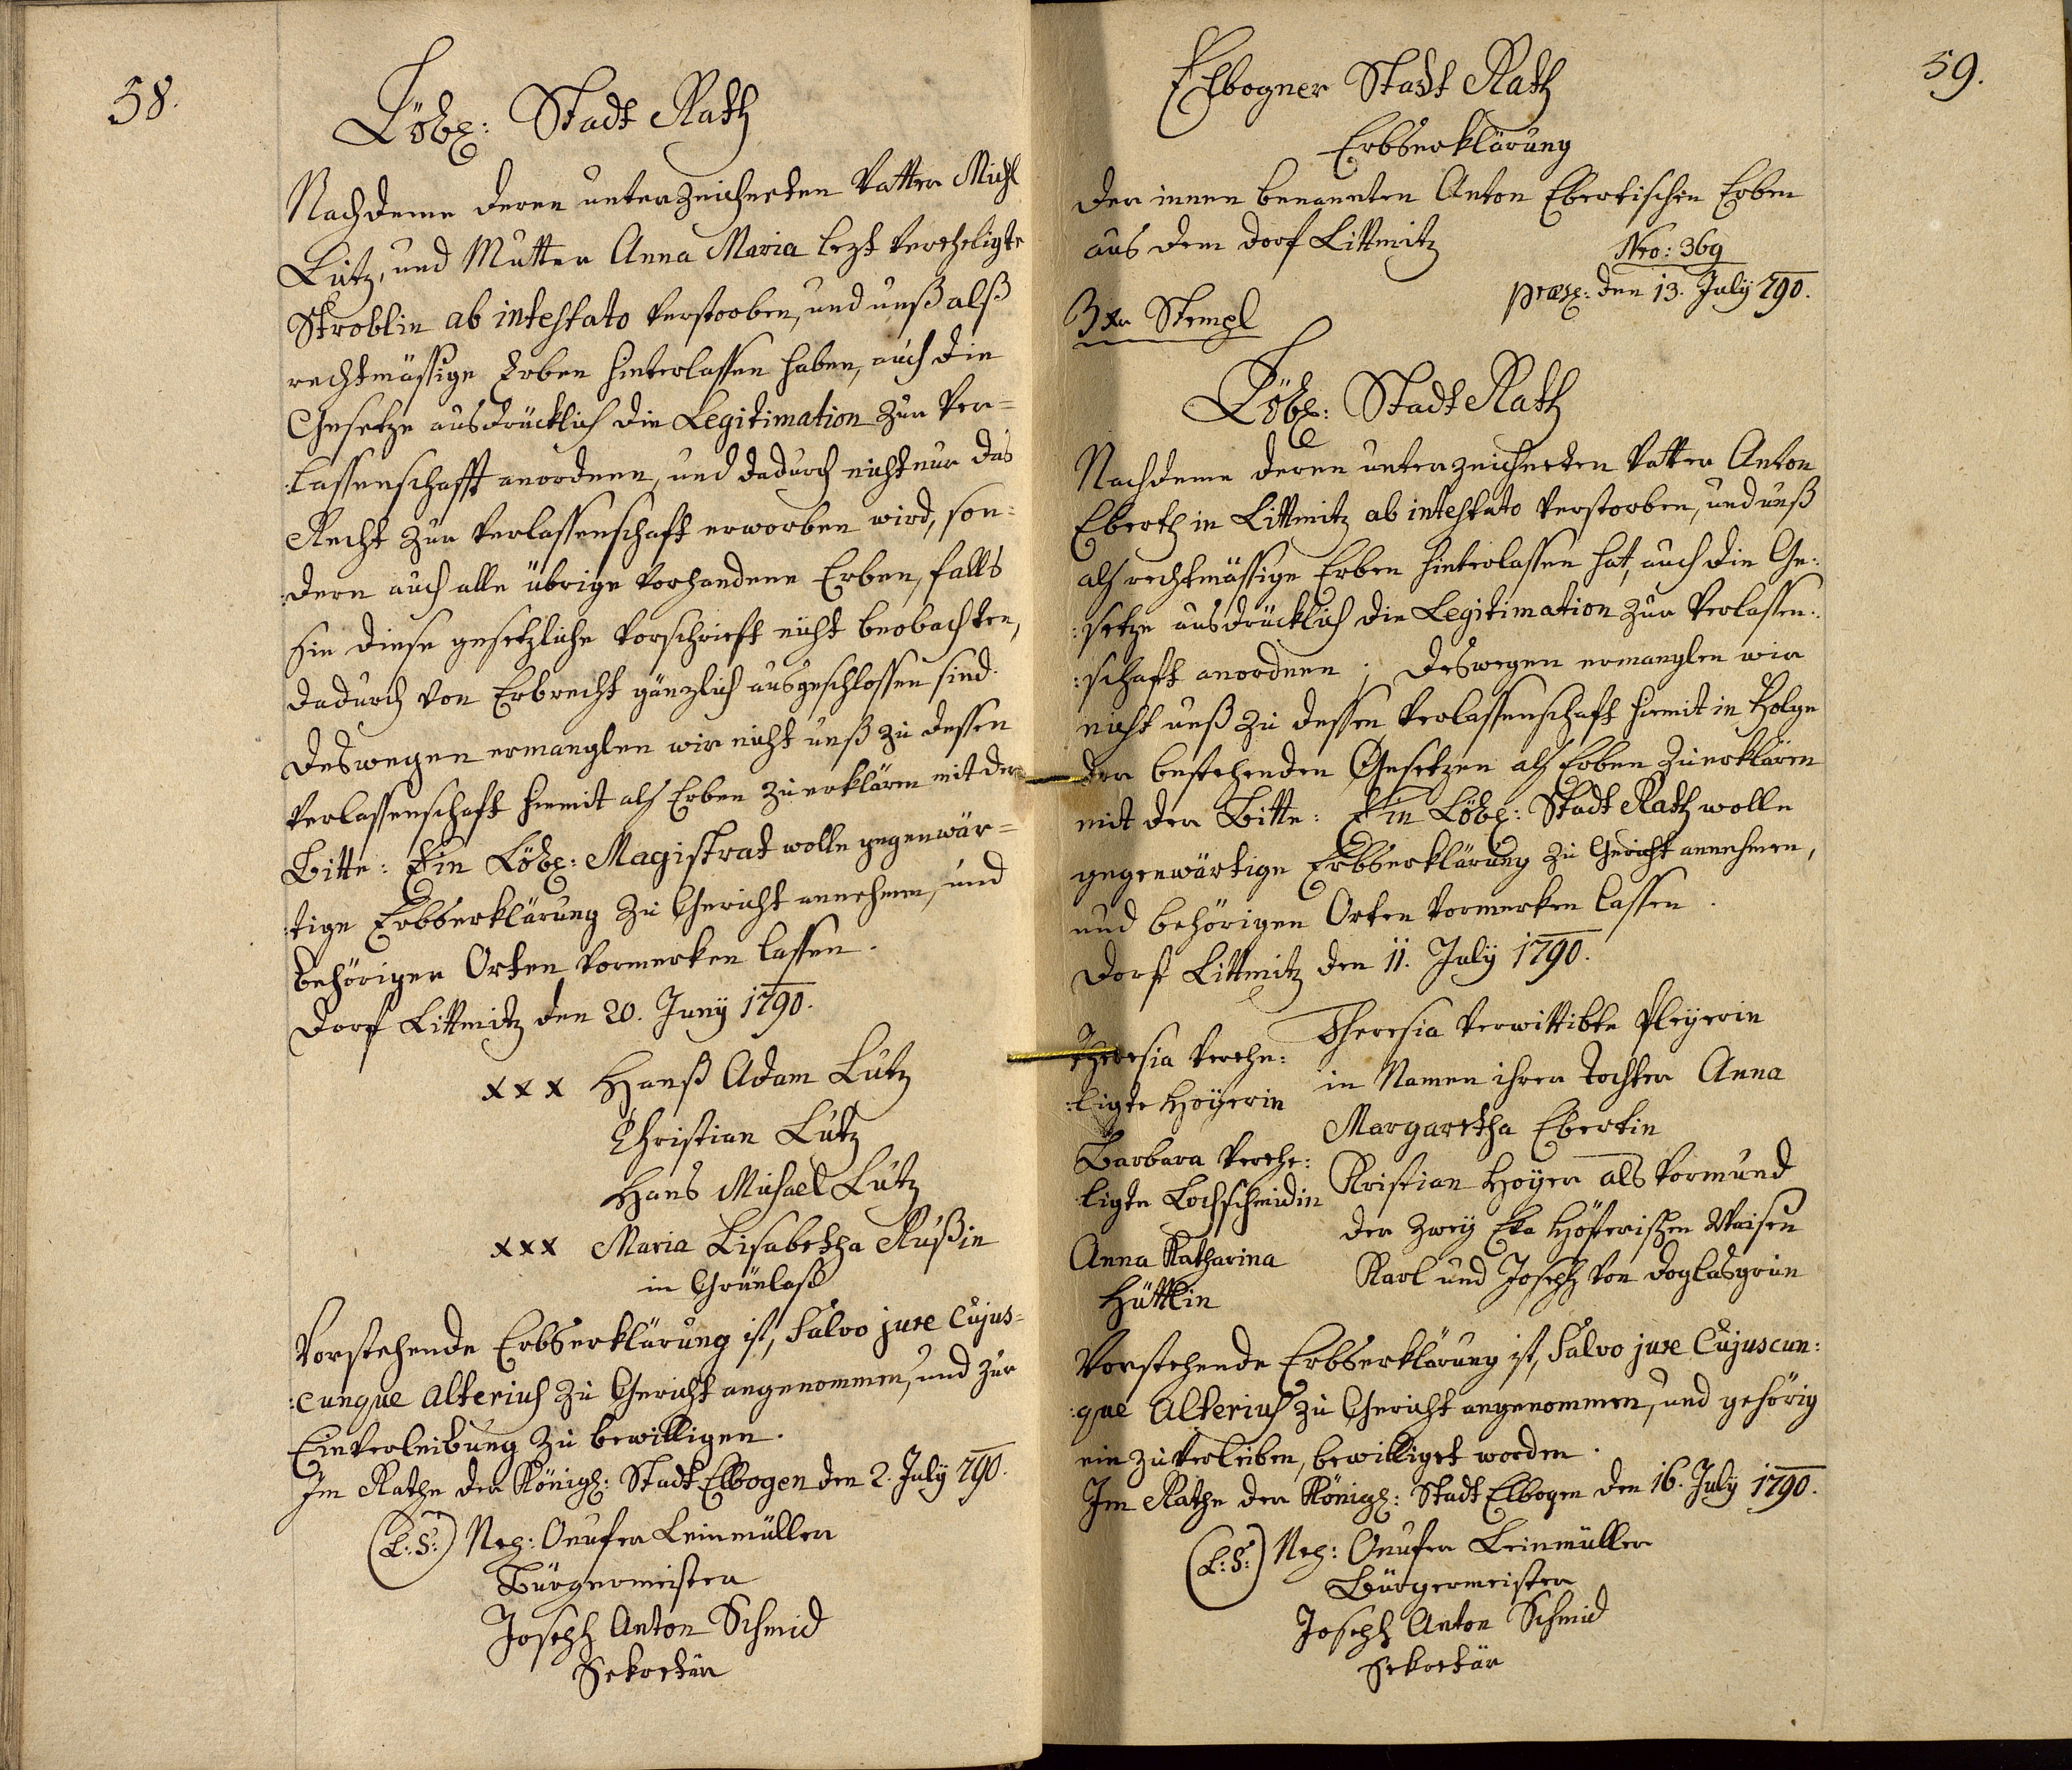 58.
Löbl: Stadt Rath
Nachdeme deren unterzeichneten Vatter Michl
Lutz, und Mutter Anna Maria lezt verheligte
Stroblin ab intestato verstorben, und unß alß
rechtmässige Erben hinterlassen haben, auch die
Gesetze ausdrücklich die Legitimation zur Ver=
:lassenschafft anordnen, und dadurch nicht nur das
Recht zur Verlassenschaft erworben wird, son=
:dern auch alle übrige vorhandene Erben, falls
sie diese gesetzliche Vorschrieft nicht beobachten,
dadurch von Erbrecht gänzlich ausgeschlossen sind.
Deswegen ermanglen wir nicht unß zu dessen
Verlassenschaft hiemit als Erben zu erklären mit der
Bitte: Ein Löbl: Magistrat wolle gegenwär=
:tige Erbserklärung zu Gericht annehmen, und
behöriger Orten vormerken lassen.
Dorf Littmitz den 20. Juny 1790.
xxx Hanß Adam Lutz
Christian Lutz
Hans Michael Lutz
xxx Maria Lisabetha Rußin
in Grünlaß
Vorstehende Erbserklärung ist, Salvo jure Cujus=
:cunque alterius zu Gericht angenommen, und zur
Einverleibung zu bewilligen.
Im Rathe der Königl: Stadt Elbogen den 2. July 790.
(L:S:) Nep: Onufer Leinmüller
Bürgermeister
Joseph Anton Schmid
Sekretär
59.
Elbogner Stadt Rath
Erbserklärung
der innen benannten Anton Ebertischen Erben
aus dem Dorf Littmitz
Nro: 369
præs: den 13. July 790.
3 xr Stempl
Löbl: Stadt Rath
Nachdeme deren unterzeichneten Vatter Anton
Ebert in Littmitz ab intestato verstorben, und unß
als rechtmässige Erben hinterlassen hat, auch die Ge:
:setze ausdrücklich die Legitimation zur Verlassen:
:schaft anordnen; Deswegen ermanglen wir
nicht unß zu dessen Verlassenschaft hiemit in Folge
der bestehenden Gesetzen als Erben zu erklären
mit der Bitte: Ein Löbl: Stadt Rath wolle
gegenwärtige Erbserklärung zu Gericht annehmen,
und behörigen Orten vormerken lassen.
Dorf Littmitz den 11. July 1790.
Theresia verehe:
:ligte Hoyerin
Barbara verehe:
ligte Lochschmidin
Anna Katharina
Hüttlin
Theresia verwittibte Pleyerin
in Namen ihrer Tochter Anna
Margaretha Ebertin
Kristian Hoyer als Vormund
der zwey Höferischen Waisen
Karl und Joseph von Doglasgrün
Vorstehende Erbserklärung ist, Salvo jure Cujuscun:
:que Alterius zu Gericht angenommen, und gehörig
ein zu verleiben, bewilliget worden.
Im Rathe der Königl: Stadt Elbogen den 16. July 1790.
(L:S:) Nep: Onufer Leinmüller
Bürgermeister
Joseph Anton Schmid
Sekretär